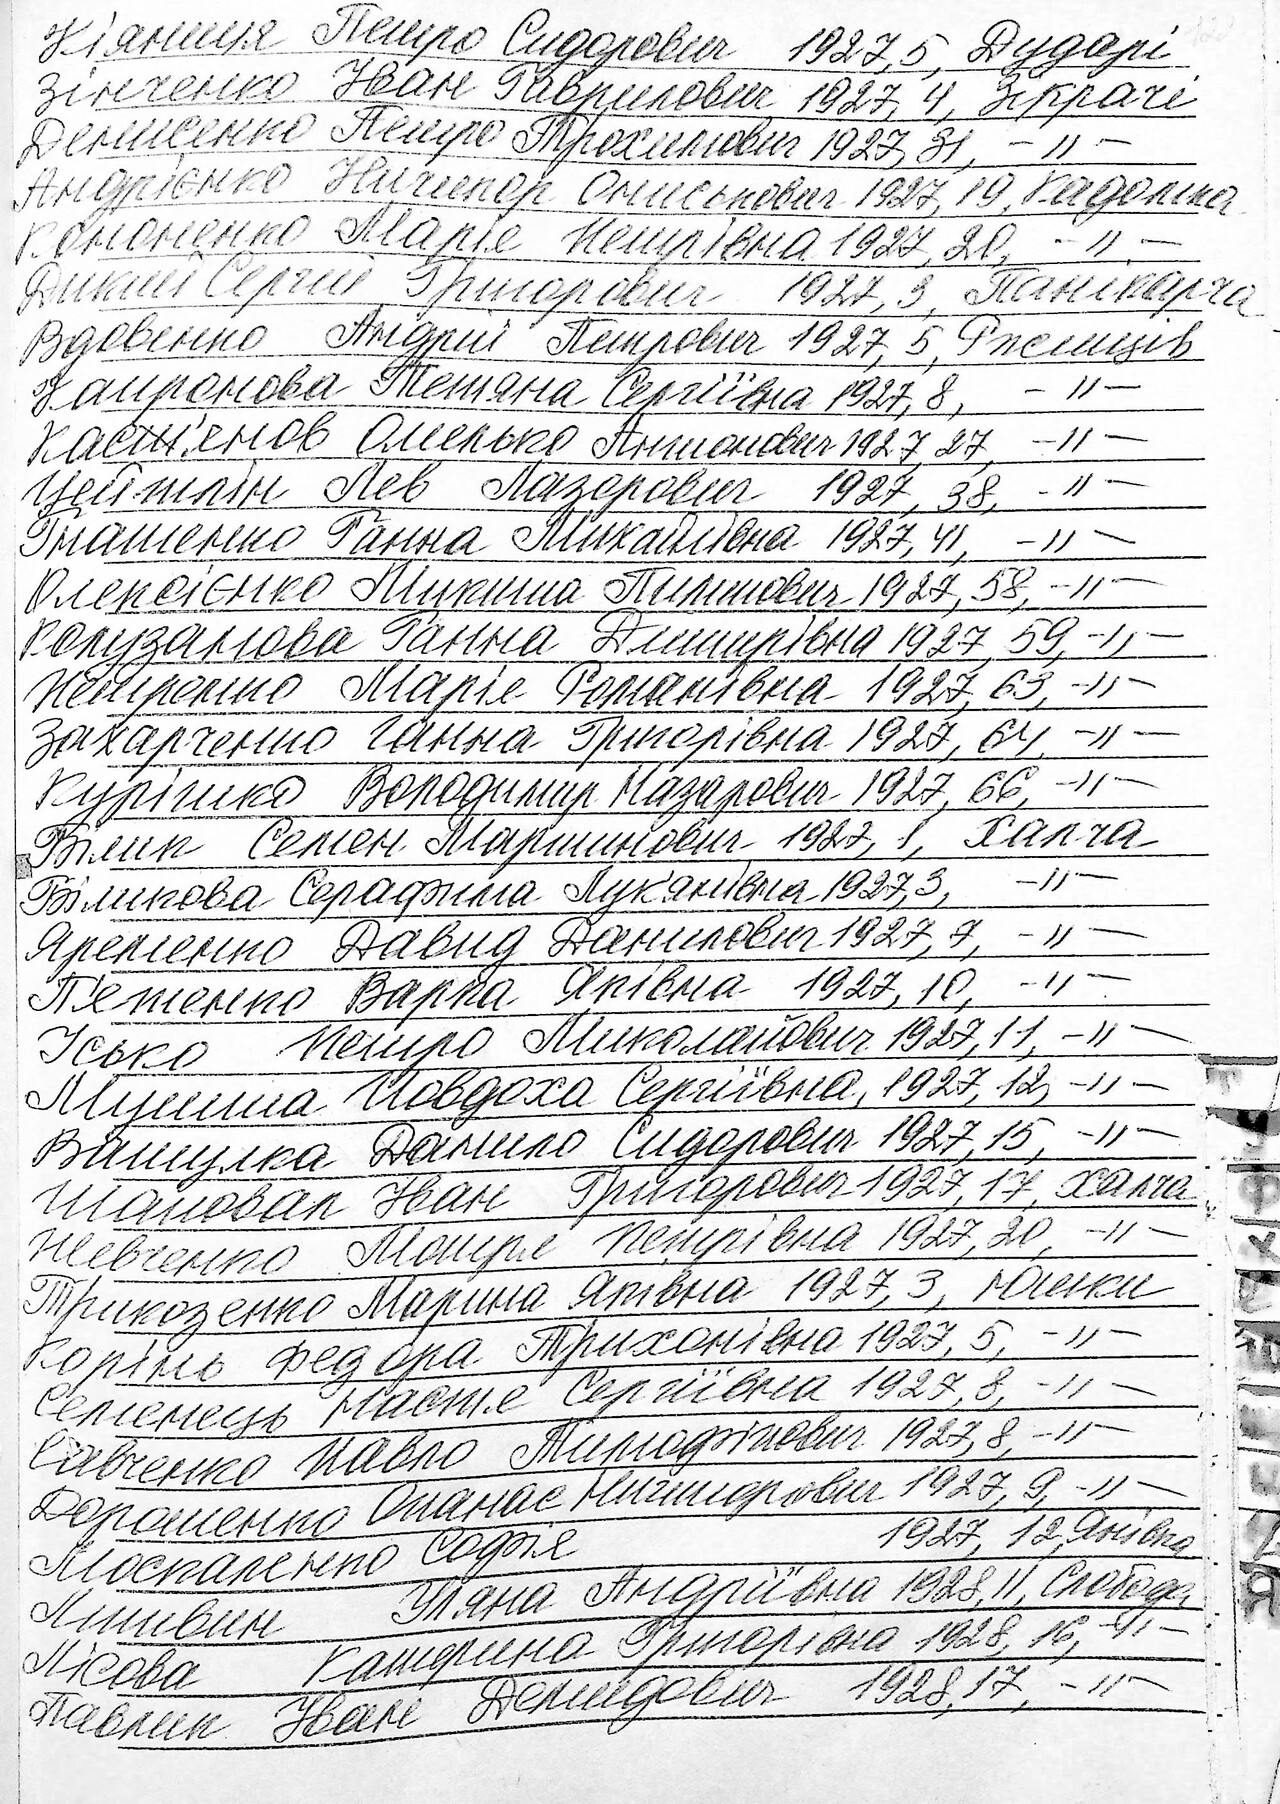 Кіяниця Петро Сидорович 1927, 5, Дударі
Зінченко Іван Гаврилович 1927, 4, Зікрачі
Денисенко Петро Трохимович 1927, 31, -"-
Андрієнко Ничипор Ониськович 1927, 19, Кадомка
Кононенко Марія Петрівна 1927, 20, -"-
Дикий Сергій Григорович 1927, 3, Панікарча
Вдовенко Андрій Петрович 1927, 5, Ржищів
Тетяна Сергіївна 1927, 8, -"-
Каст'янов Олелько Антонович 1927, 27, -"-
Цейтлін Лев Лазерович 1927, 38, -"-
Гнатенко Ганна Михайлівна 1927, 41, -"-
Олексієнко Микита Пилипович 1927, 58, -"-
Ганна Дмитрівна 1927, 59, -"-
Петренко Марія Романівна 1927, 63, -"-
Захарченко Ганна Григорівна 1927, 64, -"-
Курішко Володимир Назарович 1927, 66, -"-
Білик Семен Мартинович 1927, 1, Халча
Біликова Серафима Лук'янівна 1927, 3, -"-
Яременко Давид Данилович 1927, 7, -"-
П'ятенко Варка Яківна 1927, 10, -"-
Ісько Петро Миколайович 1927, 11, -"-
Мушта Човдоха Сергіївна, 1927, 12, -"-
Вашулка Данило Сидорович 1927, 15, -"-
Шаповал Іван Григорович 1927, 17, Халча
Шевченко Мотря Петрівна 1927, 20, -"-
Трикозенко Марина Яківна 1927, 3, Юшки
Корінь Федора Трихонівна 1927, 5, -"-
Семенець Настя Сергіївна 1927, 8, -"-
Савченко Павло Тимофійович 1927, 8, -"-
Дорошенко Опанас Ничипорович 1927, 9, -"-
Москаленко Софія 1927, 12, Янівка
Литвин Уляна Андріївна 1928, 11, Слобода
Лісова Катерина Григорівна 1928, 16, -"-
Павлик Іван Демидович 1928, 17, -"-